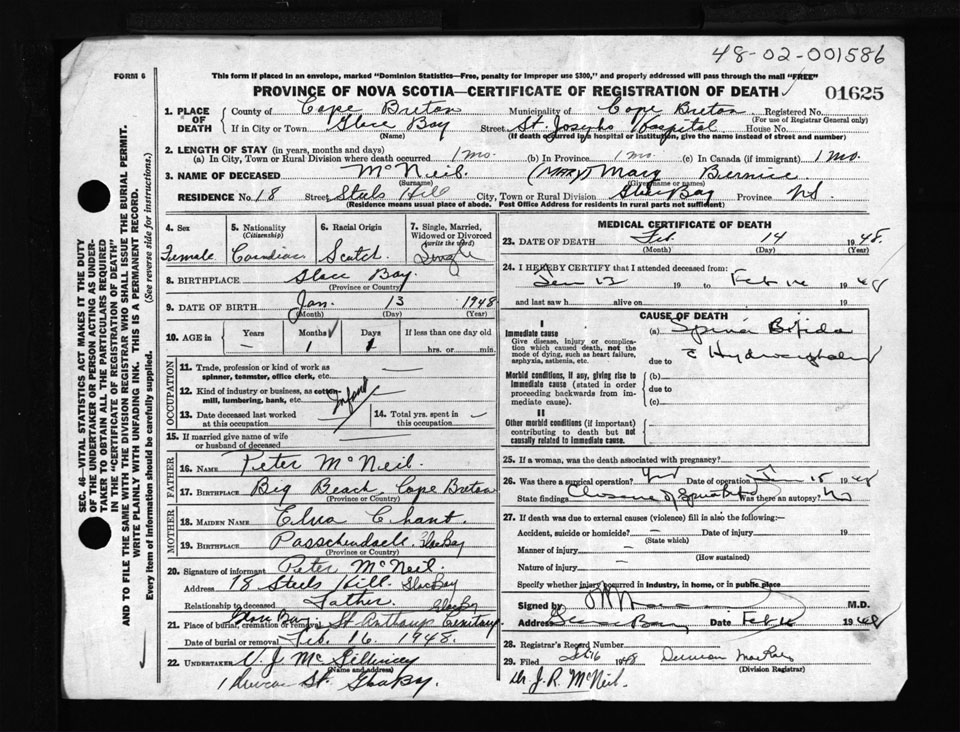 48-02-001586
FORM 6
This form if placed in an envelope, marked "Dominion Statistics—Free, penalty for improper use $300," and properly addressed will pass through the mail "FREE"
PROVINCE OF NOVA SCOTIA—CERTIFICATE OF REGISTRATION OF DEATH 01625
1. PLACE OF DEATH County of Cape Breton Municipality of Cape Breton Registered No.
(For use of Registrar General only)
If in City or Town Glace Bay Street St. Josephs Hospital House No.
(Name) (If death occurred in a hospital or institution, give the name instead of street and number)
2. LENGTH OF STAY (in years, months and days)
(a) In City, Town or Rural Division where death occurred 1 mo. (b) In Province 1 mo. (c) In Canada (if immigrant) 1 mo.
3. NAME OF DECEASED McNeil. (MARY) Mary Bernice
(Surname) (Given name or names)
RESIDENCE No. 18 Street Steels Hill City, Town or Rural Division Glace Bay Province NS
(Residence means usual place of abode. Post Office Address for residents in rural parts not sufficient)
SEC. 46—VITAL STATISTICS ACT MAKES IT THE DUTY
OF THE UNDERTAKER OR PERSON ACTING AS UNDER-
TAKER TO OBTAIN ALL THE PARTICULARS REQUIRED
IN THE "CERTIFICATE OF REGISTRATION OF DEATH"
AND TO FILE THE SAME WITH THE DIVISION REGISTRAR WHO SHALL ISSUE THE BURIAL PERMIT.
WRITE PLAINLY WITH UNFADING INK. THIS IS A PERMANENT RECORD.
Every item of information should be carefully supplied. (See reverse side for instructions.)
4. Sex 5. Nationality (Citizenship) 6. Racial Origin 7. Single, Married, Widowed or Divorced (write the word)
Female Canadian Scotch Single
8. BIRTHPLACE Glace Bay.
(Province or Country)
9. DATE OF BIRTH Jan. 13 1948
(Month) (Day) (Year)
10. AGE in Years Months Days If less than one day old
— 1 1 hrs. or min.
OCCUPATION
11. Trade, profession or kind of work as spinner, teamster, office clerk, etc. —
12. Kind of industry or business, as cotton mill, lumbering, bank, etc. Infant
13. Date deceased last worked at this occupation 14. Total yrs. spent in this occupation —
15. If married give name of wife or husband of deceased —
FATHER
16. NAME Peter McNeil.
17. BIRTHPLACE Big Beach Cape Breton
(Province or Country)
MOTHER
18. MAIDEN NAME Elva Chant.
19. BIRTHPLACE Passchendaele. Glace Bay
(Province or Country)
20. Signature of informant Peter McNeil.
Address 18 Steels Hill. Glace Bay
Relationship to deceased Father.
21. Place of burial, cremation or removal Glace Bay St Anthony Cemitary Glace Bay
Date of burial or removal Feb. 16. 1948.
22. UNDERTAKER V. J. McGillivray
(Name and address)
St. Glace Bay.
MEDICAL CERTIFICATE OF DEATH
23. DATE OF DEATH Feb. 14 1948.
(Month) (Day) (Year)
24. I HEREBY CERTIFY that I attended deceased from:
Jan 13 19 to Feb 14 1948
and last saw h alive on 19
CAUSE OF DEATH
I
Immediate cause
Give disease, injury or complication which caused death, not the mode of dying, such as heart failure, asphyxia, asthenia, etc.
(a) Spina Bifida
due to c̄ Hydrocephalus
Morbid conditions, if any, giving rise to immediate cause (stated in order proceeding backwards from immediate cause).
(b)
due to
(c)
II
Other morbid conditions (if important) contributing to death but not causally related to immediate cause.
25. If a woman, was the death associated with pregnancy?
26. Was there a surgical operation? Yes Date of operation Jan 15 1948
State findings Closure of Spina Bifida Was there an autopsy? No
27. If death was due to external causes (violence) fill in also the following:—
Accident, suicide or homicide? Date of injury 19
(State which)
Manner of injury —
(How sustained)
Nature of injury —
Specify whether injury occurred in industry, in home, or in public place
Signed by M.D.
Address Glace Bay Date Feb 14 1948
28. Registrar's Record Number
29. Filed Feb 16 1948 Duncan MacRae
(Division Registrar)
Dr J. R. McNeil.